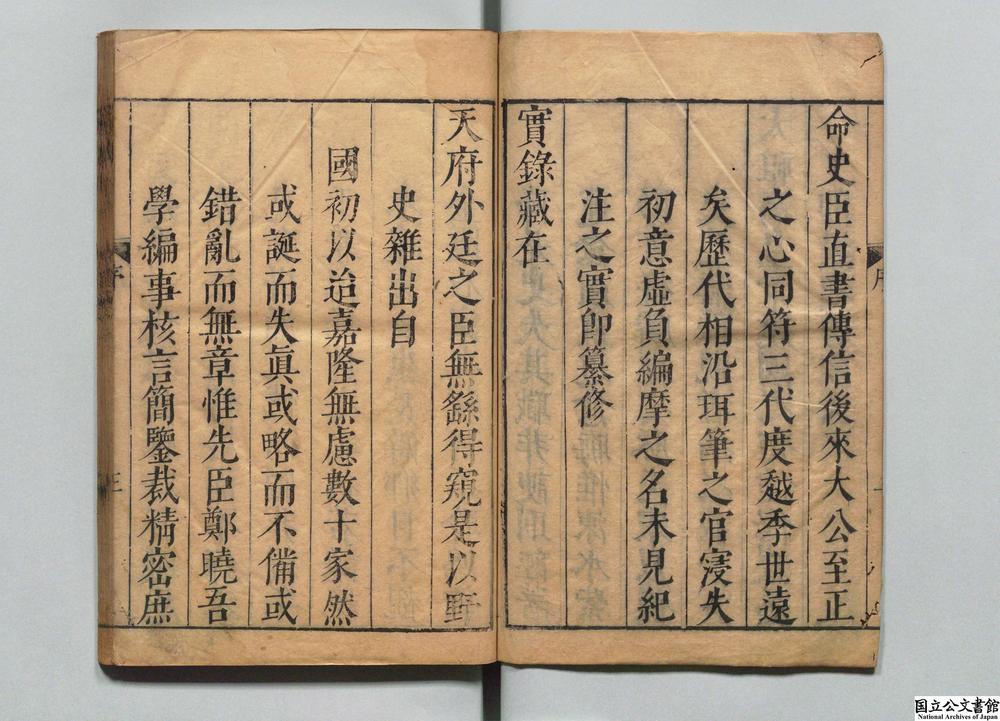 命史臣直書傳信後來大公至正
之心同符三代度越季世遠
矣歷代相沿珥筆之官寖失
初意虛負編摩之名未見紀
注之實即纂修
實錄藏在
天府外廷之臣無繇得窺是以野
史雜出自
國初以迨嘉隆無慮數十家然
或誕而失眞或略而不備或
錯亂而無章惟先臣鄭曉吾
學編事核言簡鑒裁精密庶
序
国立公文書館
National Archives of Japan